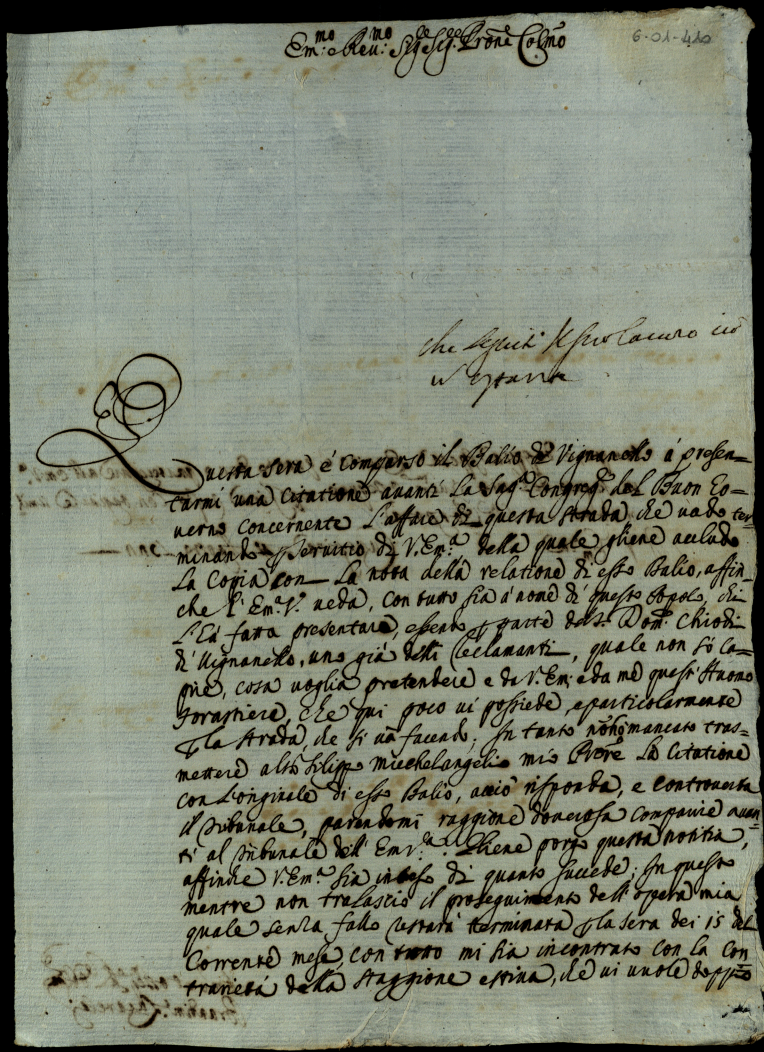 Em.mo e Rev.mo Sig.re Sig.re Prone Colmo
6-01-420
che
Questa sera è comparso il Balio di Vignanello á presen=
tarmi una citatione avanti la Sag.a Congreg.e del Buon Go=
verno concernente l'affare di questa strada che vado ter=
minando p servitio di V. Em.a della quale gliene accludo
la Copia con la nota della relatione di esso Balio, affin=
che l'Em.a V.a veda, con tutto sia á nome di questo Popolo, chi
l'ha fatta presentare, essendo p parte del S.r Dom.co Chiodi
di Vignanello, uno già delli Reclamanti, quale non só ca=
pire, cosa voglia pretendere e da V. Em. e da me quest'Huomo
forastiere, che qui poco vi possiede, e particolarmente
p la strada, che si va facendo; In tanto non hó mancato tras=
mettere al S.r Filippo Miechelangeli mio Prore la Citatione
con l'originale di esso Balio, acció risponda, e controverta
il Tribunale, parendomi raggione doverosa comparire avan=
ti al Tribunale dell'Em. V.a. Gliene porgo questa notitia,
affinche V. Em.a sia inteso di quanto succede; In questo
mentre non tralascio il proseguimento dell'opera mia
quale senza fallo restará terminata p la sera dei 15 del
Corrente mese, con tutto mi sia incontrato con la con
trarietá della staggione estiva, che vi vuole doppio